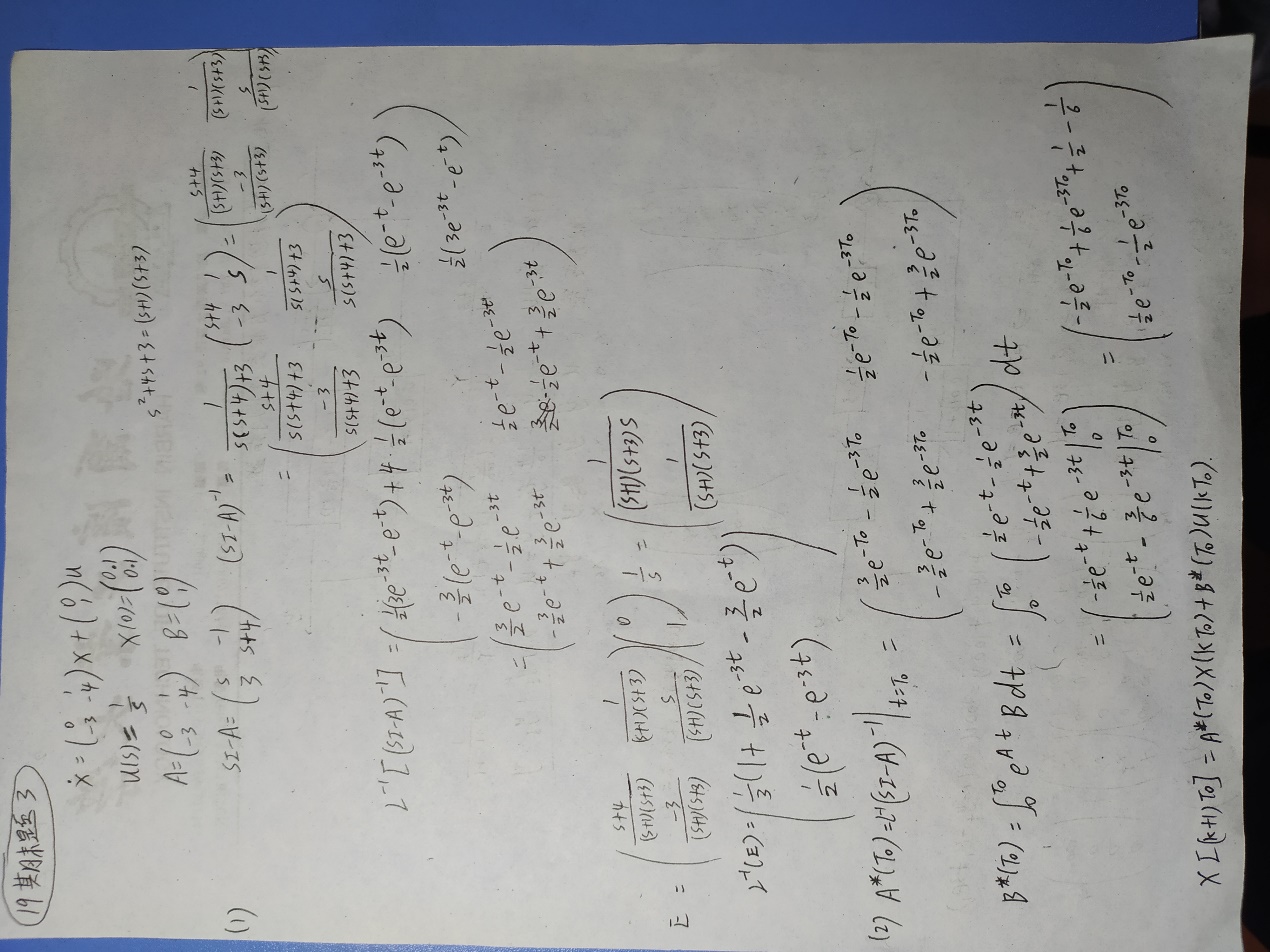 19期末题 3
ẋ = (0 1; -3 -4) X + (0; 1) u
U(s) = 1/s X(0) = (0.1; 0.1)
s²+4s+3 = (s+1)(s+3)
A = (0 1; -3 -4) B = (0; 1)
(1) SI-A = (s -1; 3 s+4) (SI-A)⁻¹ = 1/(s(s+4)+3) (s+4 1; -3 s) = ((s+4)/((s+1)(s+3)) 1/((s+1)(s+3)); -3/((s+1)(s+3)) s/((s+1)(s+3)))
= ((s+4)/(s(s+4)+3) 1/(s(s+4)+3); -3/(s(s+4)+3) s/(s(s+4)+3))
L⁻¹[(SI-A)⁻¹] = (½(3e^{-3t}-e^{-t})+4·½(e^{-t}-e^{-3t}) ½(e^{-t}-e^{-3t}); -3/2(e^{-t}-e^{-3t}) ½(3e^{-3t}-e^{-t}))
= (3/2 e^{-t} - ½ e^{-3t} ½ e^{-t} - ½ e^{-3t}; -3/2 e^{-t} + 3/2 e^{-3t} -½ e^{-t} + 3/2 e^{-3t})
E = ((s+4)/((s+1)(s+3)) 1/((s+1)(s+3)); -3/((s+1)(s+3)) s/((s+1)(s+3))) (0; 1) 1/s = (1/((s+1)(s+3)s); 1/((s+1)(s+3)))
L⁻¹(E) = (1/3(1+½e^{-3t}-3/2 e^{-t}); ½(e^{-t}-e^{-3t}))
(2) A*(T₀) = L⁻¹(SI-A)⁻¹|_{t=T₀} = (3/2 e^{-T₀} - ½ e^{-3T₀} ½ e^{-T₀} - ½ e^{-3T₀}; -3/2 e^{-T₀} + 3/2 e^{-3T₀} -½ e^{-T₀} + 3/2 e^{-3T₀})
B*(T₀) = ∫₀^{T₀} e^{At} B dt = ∫₀^{T₀} (½ e^{-t} - ½ e^{-3t}; -½ e^{-t} + 3/2 e^{-3t}) dt
= (-½ e^{-t} + 1/6 e^{-3t}|₀^{T₀}; ½ e^{-t} - 3/6 e^{-3t}|₀^{T₀}) = (-½ e^{-T₀} + 1/6 e^{-3T₀} + ½ - 1/6; ½ e^{-T₀} - ½ e^{-3T₀})
X[(k+1)T₀] = A*(T₀)X(kT₀)+B*(T₀)U(kT₀).